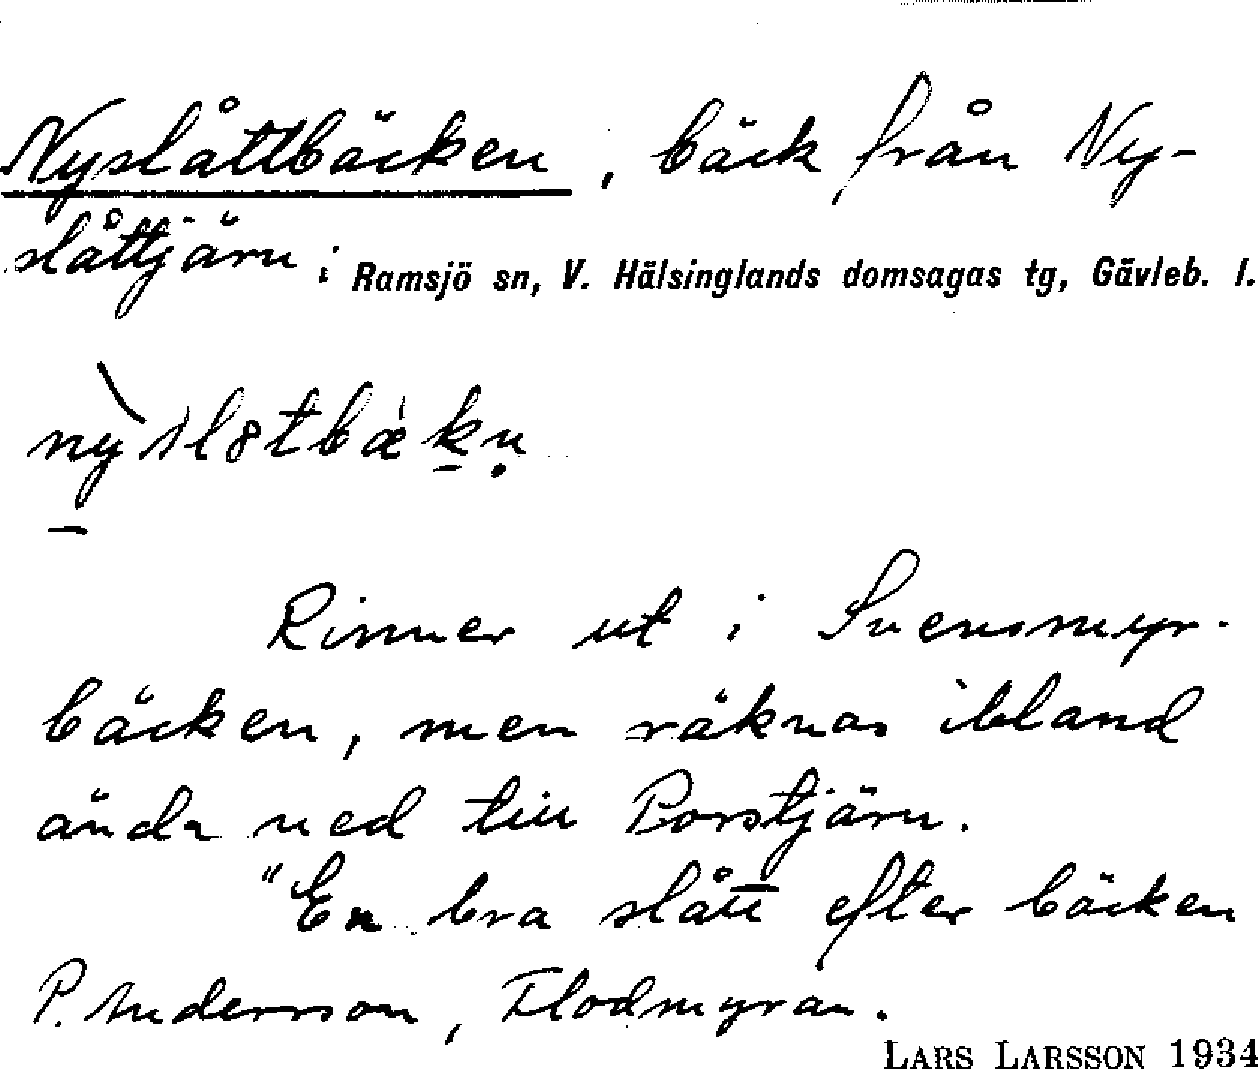 Nyslåttbäcken, bäck från Ny-
slåttjärn; Ramsjö sn, V. Hälsinglands domsagas tg, Gävleb. l.
Rinner ut i Svensmyr-
bäcken, men räknas ibland
ända ned till Porstjärn.
"En bra slått efter bäcken
P. Andersson, Flodmyran.
LARS LARSSON 1934